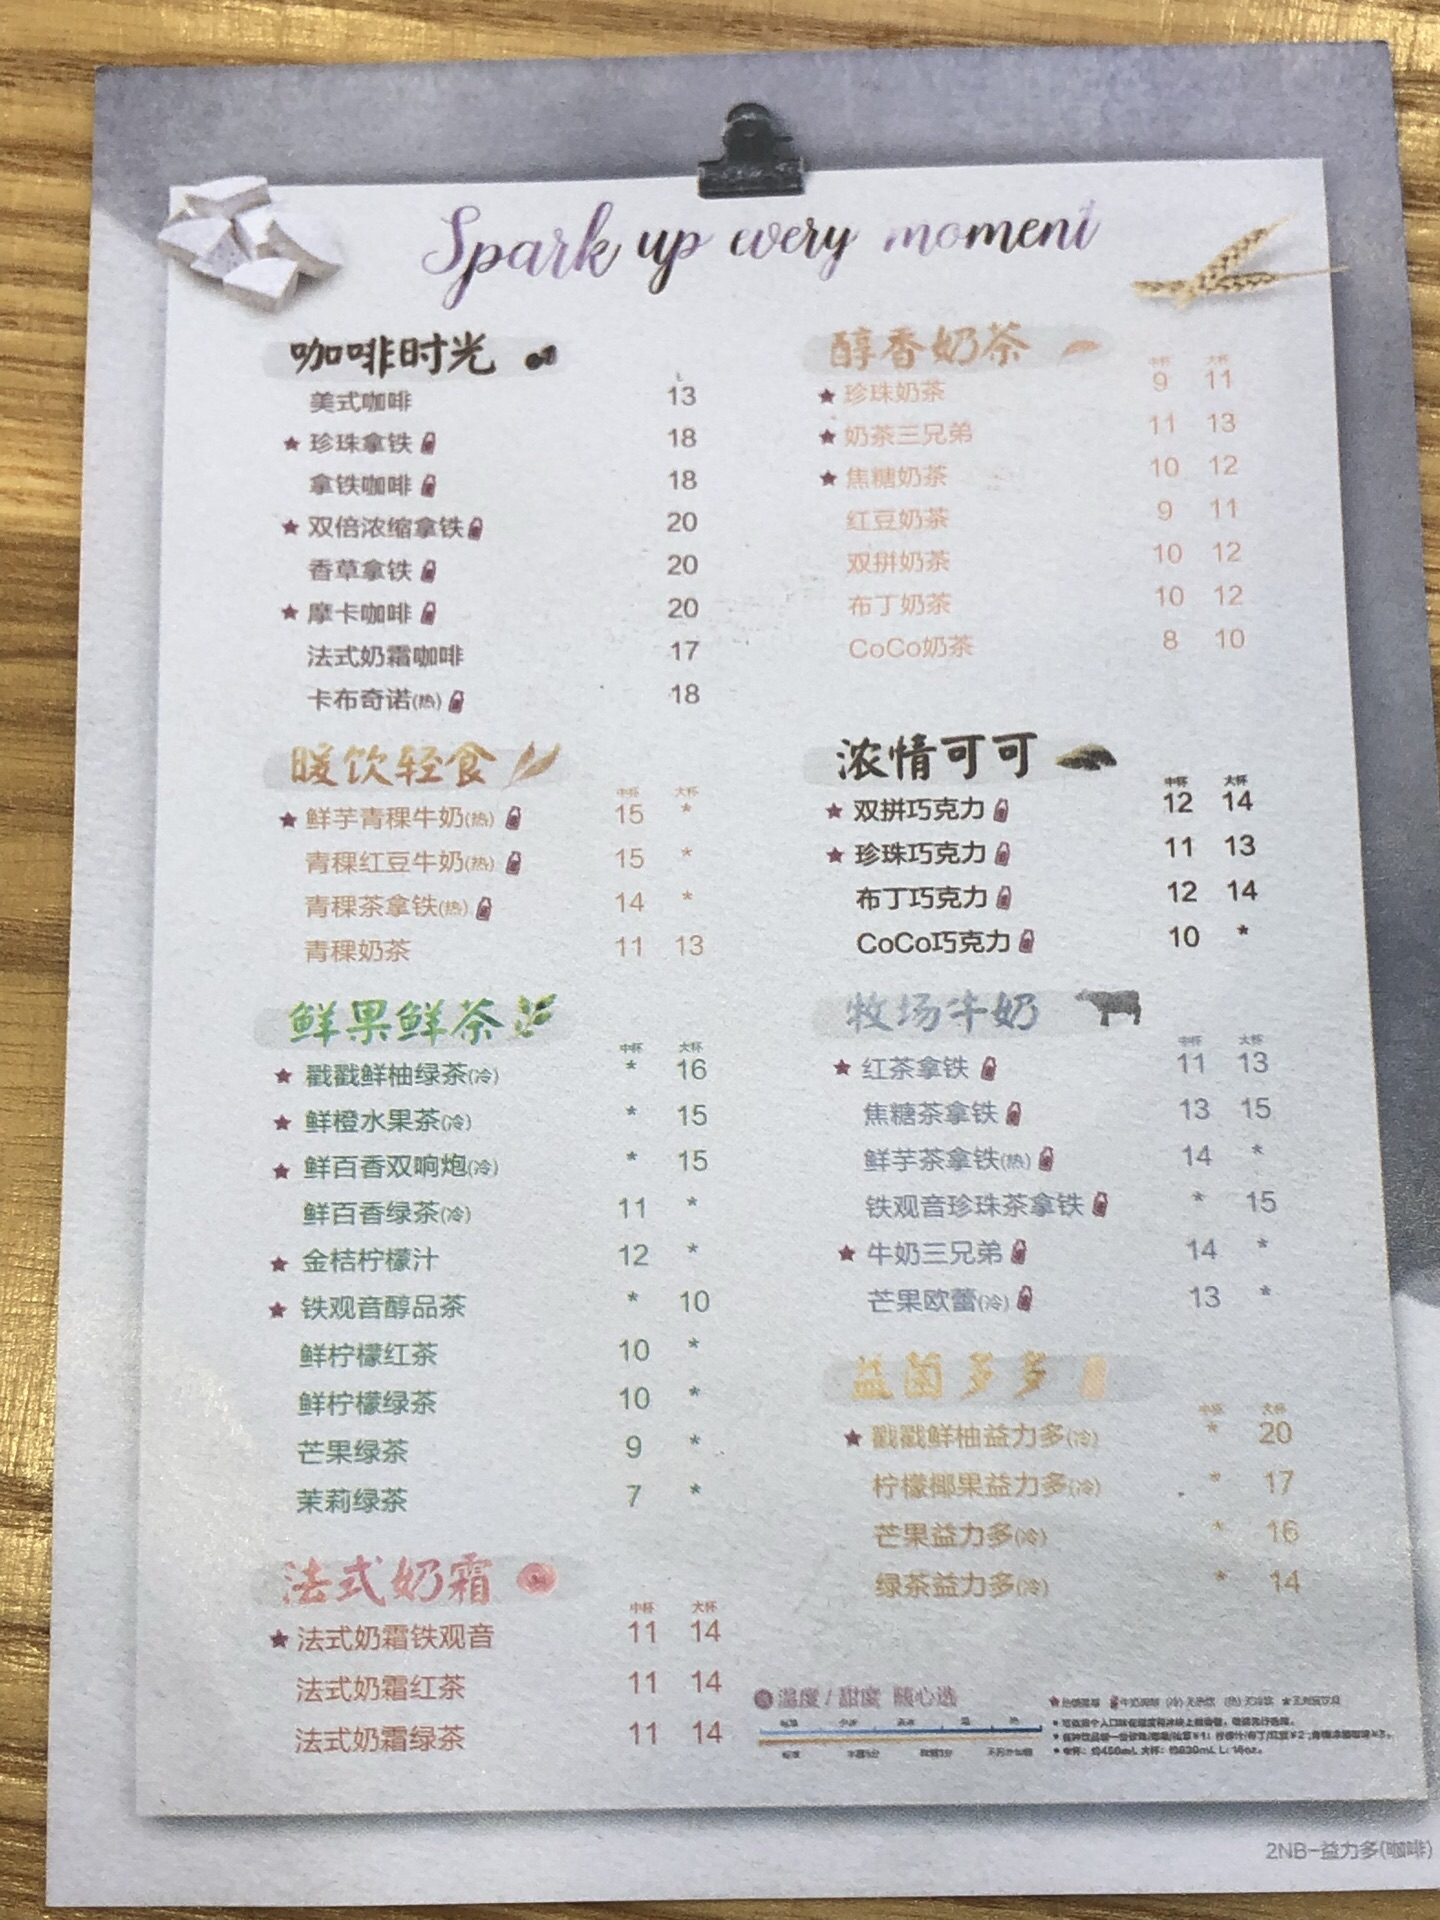 Spark up every moment
咖啡时光
L
美式咖啡 13
★ 珍珠拿铁 18
拿铁咖啡 18
★ 双倍浓缩拿铁 20
香草拿铁 20
★ 摩卡咖啡 20
法式奶霜咖啡 17
卡布奇诺(热) 18
暖饮轻食
中杯 大杯
★ 鲜芋青稞牛奶(热) 15 *
青稞红豆牛奶(热) 15 *
青稞茶拿铁(热) 14 *
青稞奶茶 11 13
鲜果鲜茶
中杯 大杯
★ 戳戳鲜柚绿茶(冷) * 16
★ 鲜橙水果茶(冷) * 15
★ 鲜百香双响炮(冷) * 15
鲜百香绿茶(冷) 11 *
★ 金桔柠檬汁 12 *
★ 铁观音醇品茶 * 10
鲜柠檬红茶 10 *
鲜柠檬绿茶 10 *
芒果绿茶 9 *
茉莉绿茶 7 *
法式奶霜
中杯 大杯
★ 法式奶霜铁观音 11 14
法式奶霜红茶 11 14
法式奶霜绿茶 11 14
醇香奶茶
中杯 大杯
★ 珍珠奶茶 9 11
★ 奶茶三兄弟 11 13
★ 焦糖奶茶 10 12
红豆奶茶 9 11
双拼奶茶 10 12
布丁奶茶 10 12
CoCo奶茶 8 10
浓情可可
中杯 大杯
★ 双拼巧克力 12 14
★ 珍珠巧克力 11 13
布丁巧克力 12 14
CoCo巧克力 10 *
牧场牛奶
中杯 大杯
★ 红茶拿铁 11 13
焦糖茶拿铁 13 15
鲜芋茶拿铁(热) 14 *
铁观音珍珠茶拿铁 * 15
★ 牛奶三兄弟 14 *
芒果欧蕾(冷) 13 *
益菌多多
中杯 大杯
★ 戳戳鲜柚益力多(冷) * 20
柠檬椰果益力多(冷) * 17
芒果益力多(冷) * 16
绿茶益力多(冷) * 14
温度/甜度 随心选
中杯: 约450mL 大杯: 约630mL L: 16oz。
2NB-益力多(咖啡)